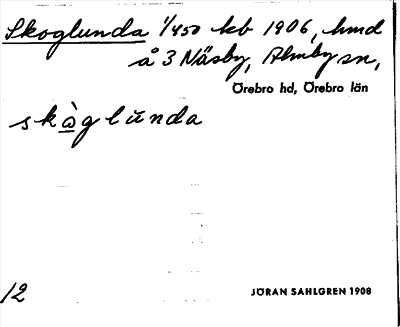 Skoglunda 1/450 kb 1906, hmd
å 3 Näsby, Almby sn,
Örebro hd, Örebro län
skòglúnda
12
JÖRAN SAHLGREN 1908